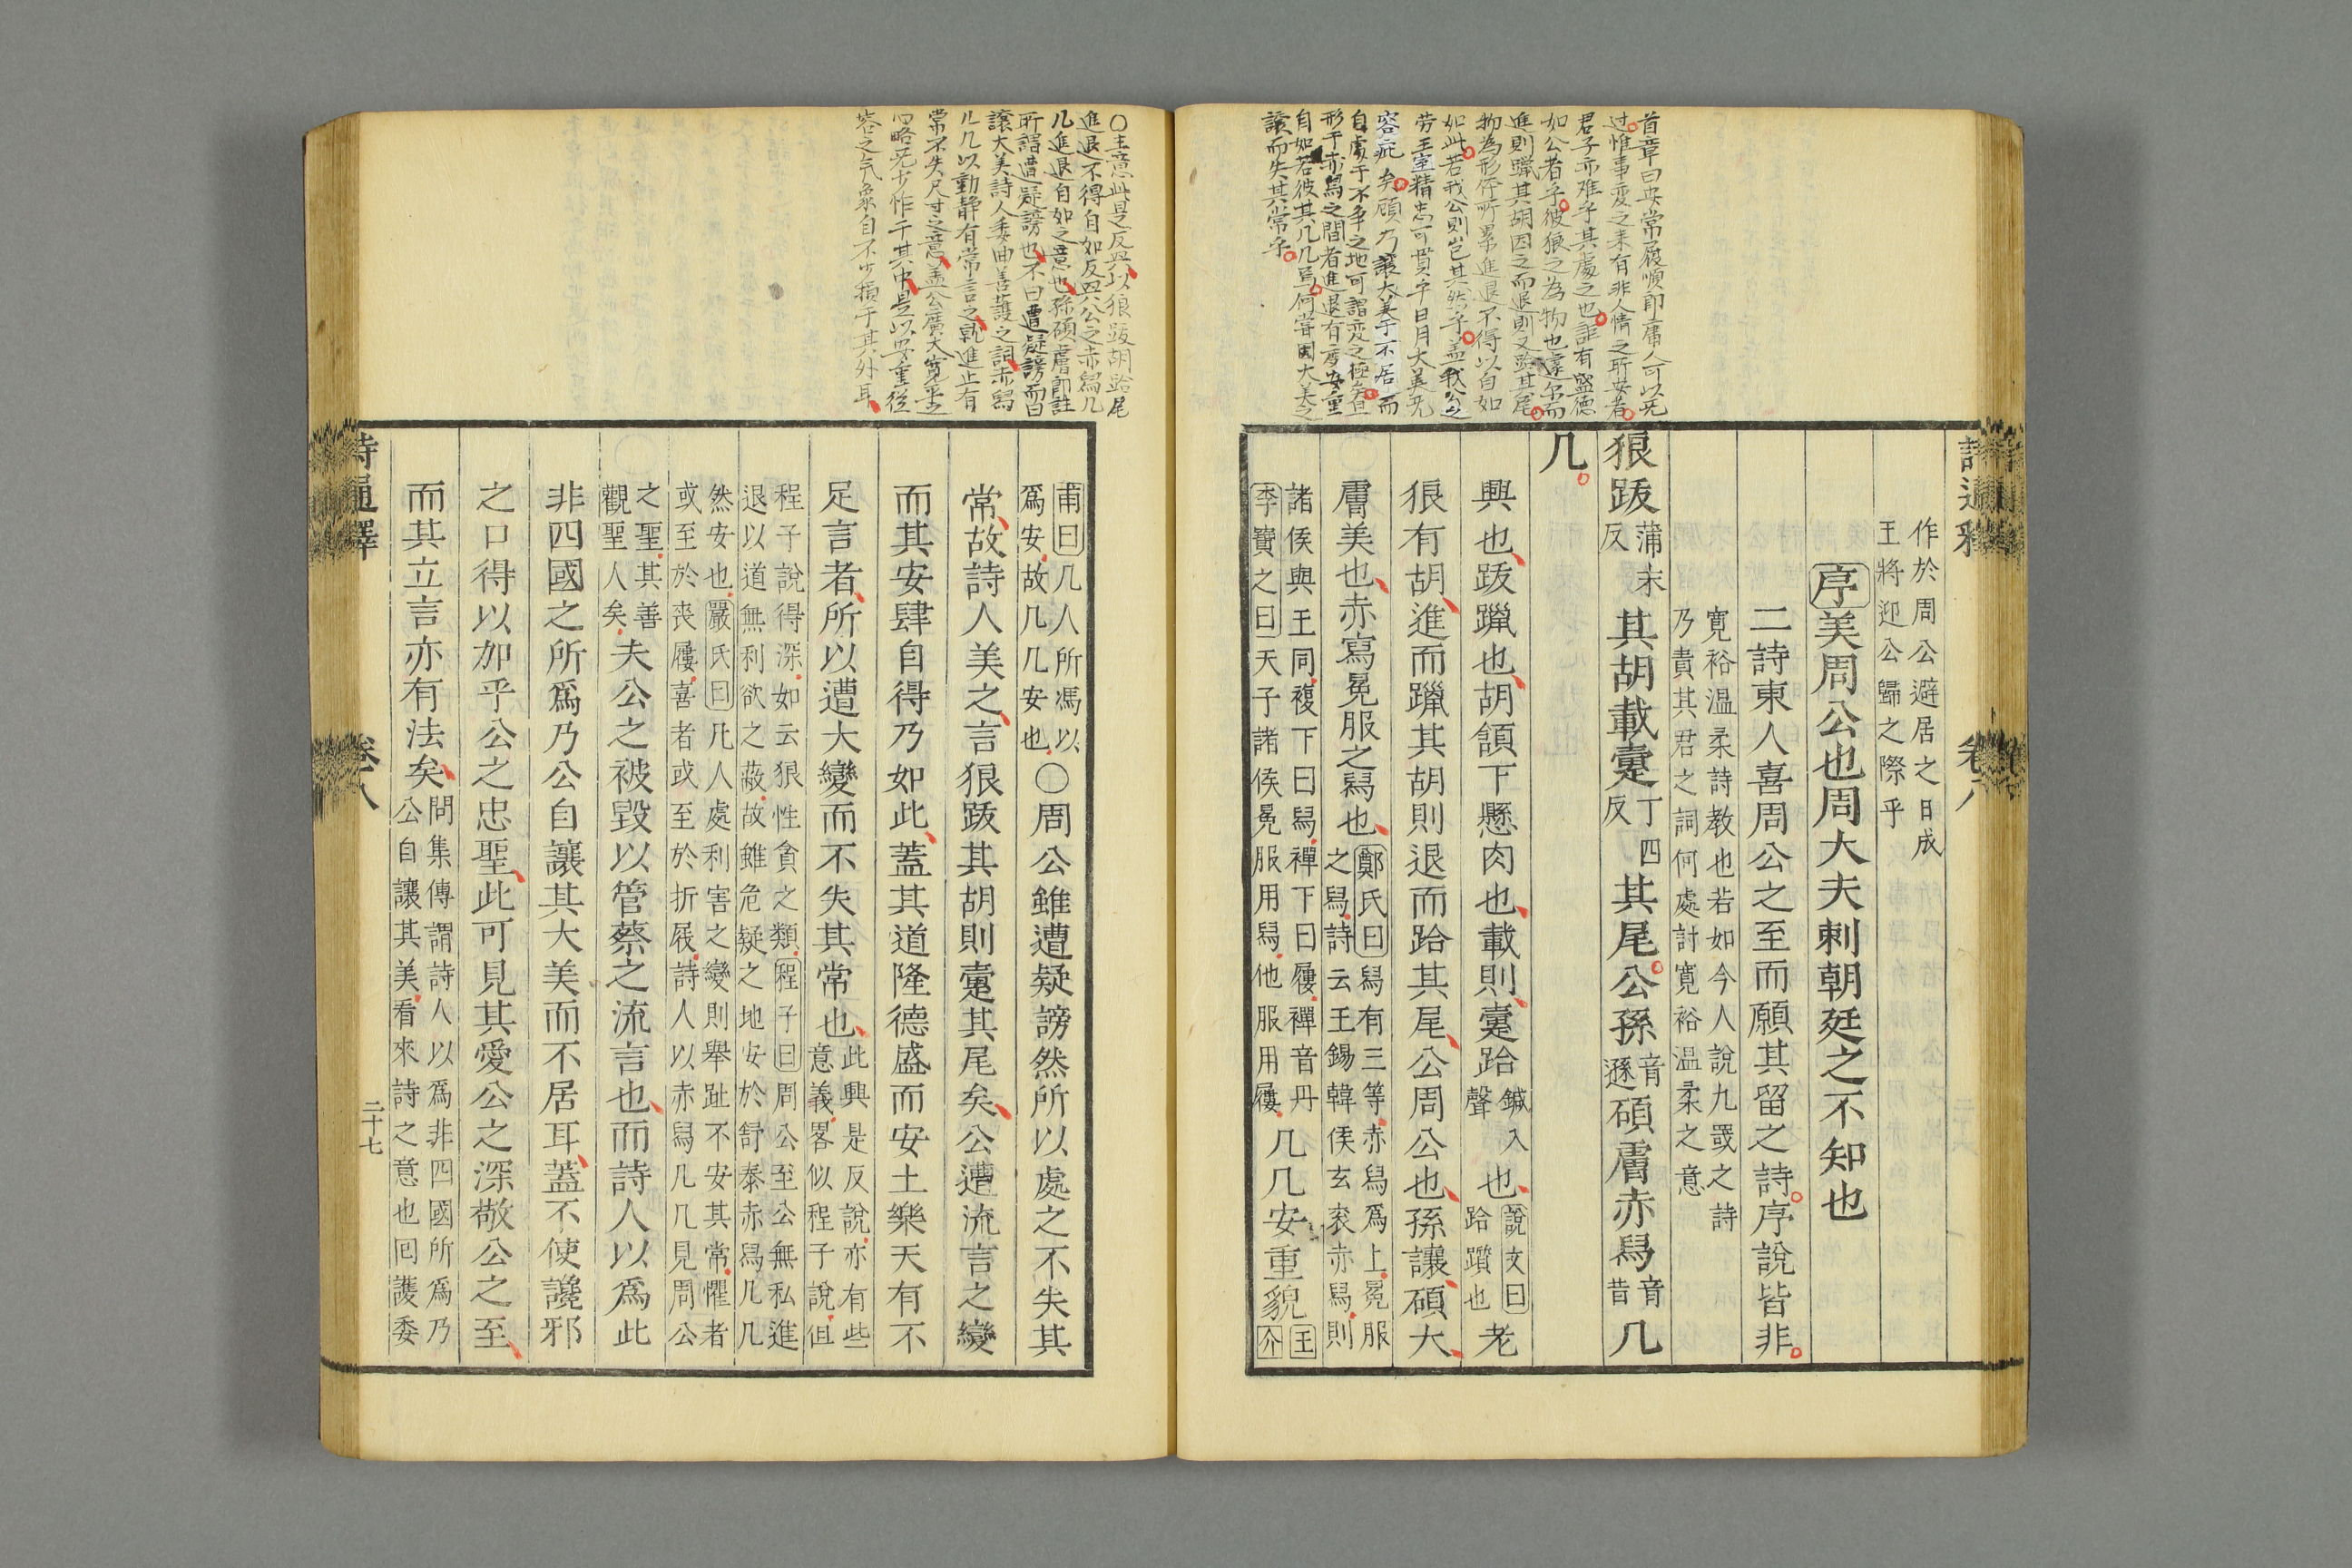 首章曰安常履順即庸人可以无
过惟事変之来有非人情之所安者
君子亦难乎其處之也詎有盛德
如公者乎彼狼之為物也遠尔而
進則躐其胡因之而退則又跲其尾
物為形俘所累進退不得以自如
如此若我公則岂其然乎盖我公之
劳王室精忠可貫乎日月大美无
容疵矣顧乃讓大美于不居而
自處于不争之地可謂変之極矣且
形于赤舄之間者進退有度安重
自如若彼其几几焉何嘗因大美之
讓而失其常乎
詩通釋
卷八
作於周公避居之日成
王將迎公歸之際乎
序美周公也周大夫刺朝廷之不知也
二詩東人喜周公之至而願其留之詩序說皆非
寬裕温柔詩教也若如今人說九罭之詩
乃責其君之詞何處討寬裕温柔之意
狼跋蒲末反其胡載疐丁四反其尾公孫音遜碩膚赤舄音昔几
几
興也跋躐也胡頷下懸肉也載則疐跲鍼入聲也說文曰跲躓也老
狼有胡進而躐其胡則退而跲其尾公周公也孫讓碩大
膚美也赤寫冕服之舄也鄭氏曰舄有三等赤舄爲上冕服之舄詩云王錫韓侯玄衮赤舄則
諸侯與王同複下曰舄禪下曰屨禪音丹李寶之曰天子諸侯冕服用舄他服用屨几几安重貌王介
甫曰几人所馮以爲安故几几安也○周公雖遭疑謗然所以處之不失其
常故詩人美之言狼跋其胡則疐其尾矣公遭流言之變
而其安肆自得乃如此蓋其道隆德盛而安土樂天有不
足言者所以遭大變而不失其常也此興是反說亦有些意義畧似程子說但
程子說得深如云狼性貪之類程子曰周公至公無私進
退以道無利欲之蔽故雖危疑之地安於舒泰赤舄几几
然安也嚴氏曰凡人處利害之變則舉趾不安其常懼者
或至於喪屨喜者或至於折屐詩人以赤舄几几見周公
之聖其善觀聖人矣夫公之被毀以管蔡之流言也而詩人以爲此
非四國之所爲乃公自讓其大美而不居耳蓋不使讒邪
之口得以加乎公之忠聖此可見其愛公之深敬公之至
而其立言亦有法矣問集傳謂詩人以爲非四國所爲乃公自讓其美看來詩之意也囘護委
詩通釋
卷八
二十七
○主意此是反興以狼跋胡跲尾
進退不得自如反興公之赤舄几
几進退自如之意也孫碩膚即註
所謂遭疑謗也不曰遭疑謗而曰
讓大美詩人委曲善護之詞赤舄
几几以動静有常言之就進止有
常不失尺寸之意盖公廣大寛平之
心略无少怍于其中是以安重從
容之气象自不少損于其外耳